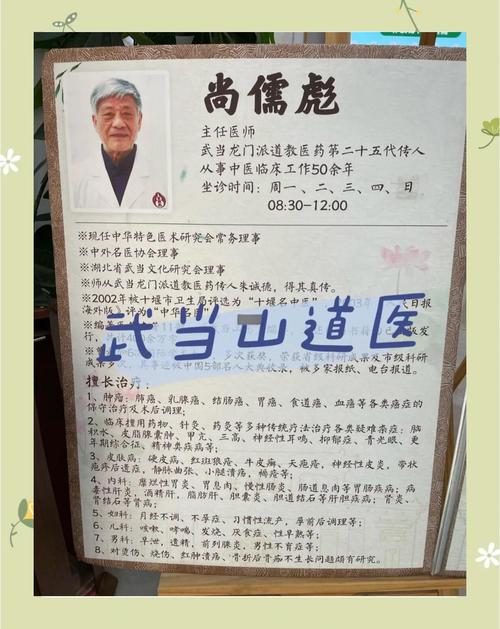 尚儒彪
主任医师
武当龙门派道教医药第二十五代传人
从事中医临床工作50余年
坐诊时间：周一、二、三、四、日
08:30-12:00
※现任中华特色医术研究会常务理事
※中外名医协会理事
※湖北省武当文化研究会理事
※师从武当龙门派道教医药传人朱诚德，得其真传。
※2002年被十堰市卫生局评选为"十堰名中医"
海外版）评为"中华名医"
武当山道医
多次获奖，荣获省级科研成果及市级科研
被多家报纸、电台报道。
擅长治疗：
1、肿瘤：肺癌、乳腺癌、结肠癌、胃癌、食道癌、血癌等各类癌症的
保守治疗及术后调理；
2、临床擅用药物、针灸、药灸等多种传统疗法治疗各类疑难杂症：脑
积水、皮脂腺囊肿、甲亢、三高、神经性耳鸣、抑郁症、青光眼、更
年期综合征、精神类疾病等；
3、皮肤病：硬皮病、红斑狼疮、牛皮癣、天疱疮、神经性皮炎、带状
疱疹后遗症，静脉曲张、小腿溃疡，褥疮等；
4、内科：糜烂性胃炎、胃息肉、慢性肠炎、肠道息肉等胃肠疾病；病
毒性肝炎，酒精肝，脂肪肝、胆囊炎、胆道结石等肝胆疾病；肾炎、
肾结石等肾病；
5、妇科：月经不调、不孕症、习惯性流产，孕前后调理等；
6、儿科：咳嗽、哮喘、发烧、厌食症、性早熟等；
7、男科：早泄，遗精，前列腺炎，男性不育症等；
8、对烫伤、烧伤、红肿溃疡、骨折后骨痂不生长问题颇有研究。